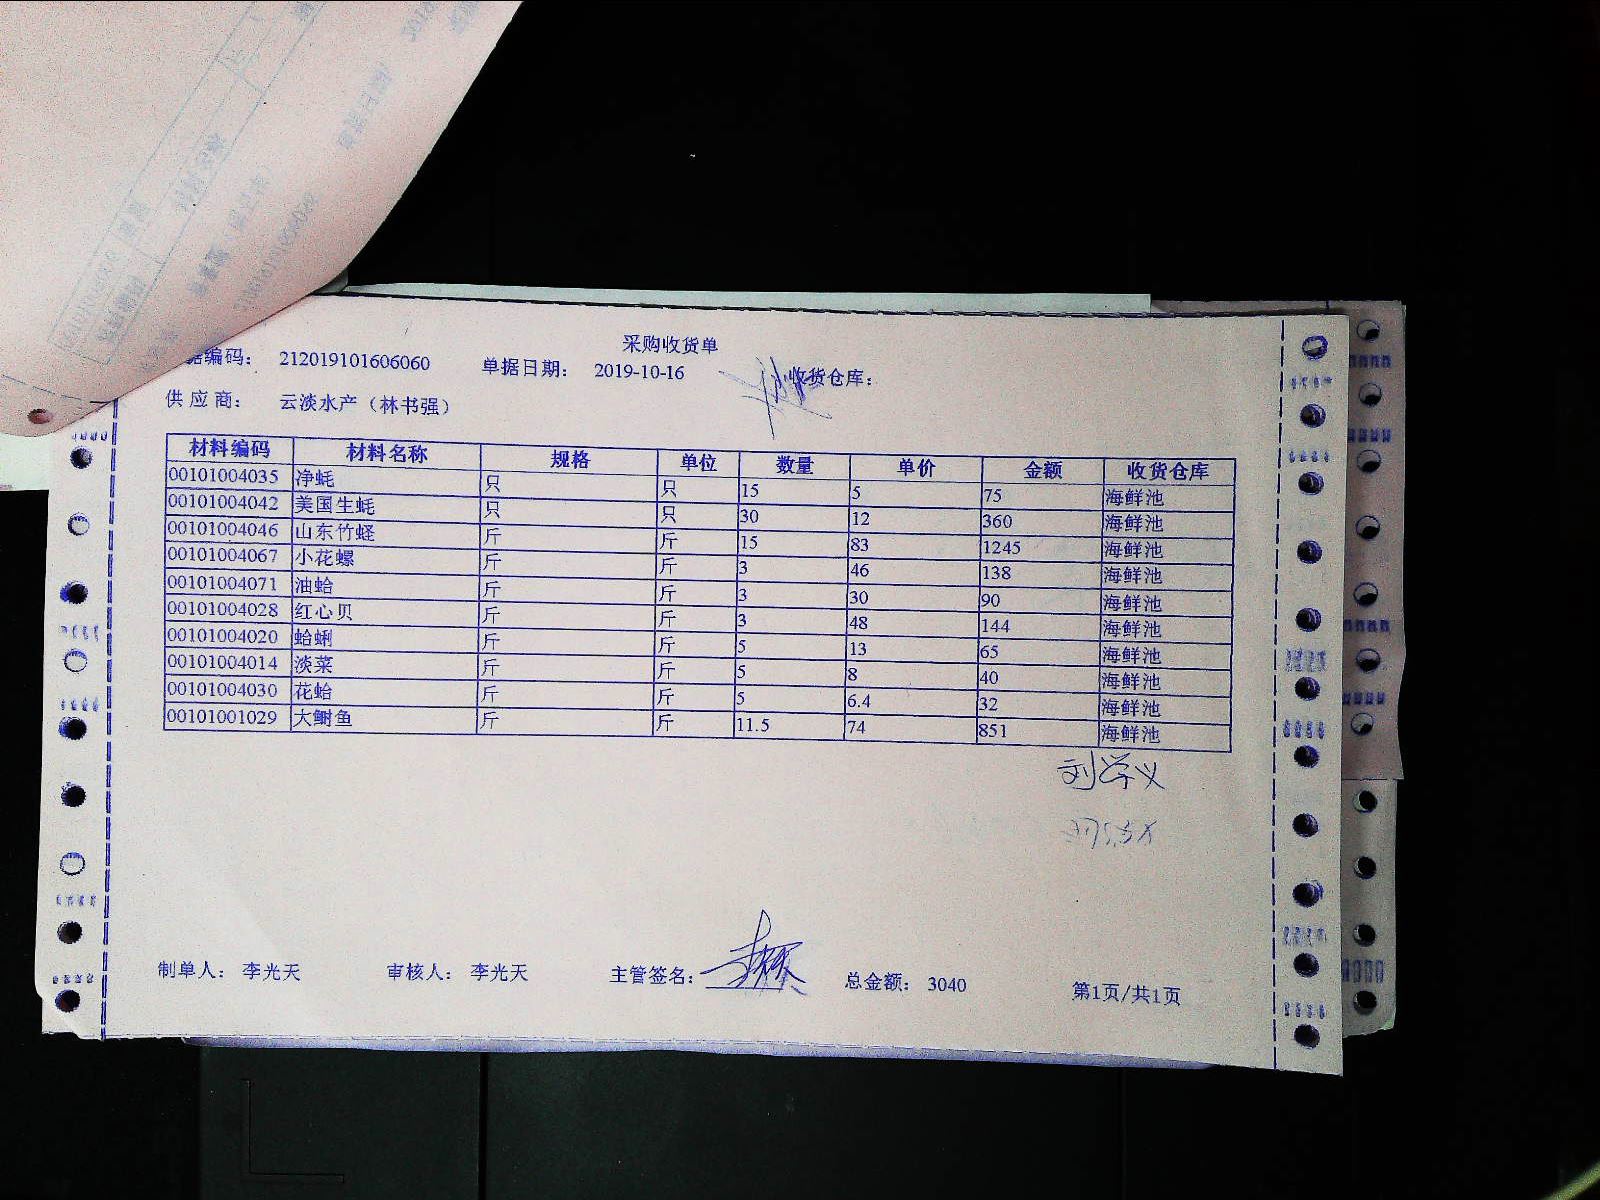 采购收货单
据编码： 212019101606060 单据日期： 2019-10-16 收货仓库：
供 应 商： 云淡水产（林书强）
材料编码 材料名称 规格 单位 数量 单价 金额 收货仓库
00101004035 净蚝 只 只 15 5 75 海鲜池
00101004042 美国生蚝 只 只 30 12 360 海鲜池
00101004046 山东竹蛏 斤 斤 15 83 1245 海鲜池
00101004067 小花螺 斤 斤 3 46 138 海鲜池
00101004071 油蛤 斤 斤 3 30 90 海鲜池
00101004028 红心贝 斤 斤 3 48 144 海鲜池
00101004020 蛤蜊 斤 斤 5 13 65 海鲜池
00101004014 淡菜 斤 斤 5 8 40 海鲜池
00101004030 花蛤 斤 斤 5 6.4 32 海鲜池
00101001029 大鲥鱼 斤 斤 11.5 74 851 海鲜池
制单人： 李光天 审核人： 李光天 主管签名： 总金额： 3040 第1页/共1页